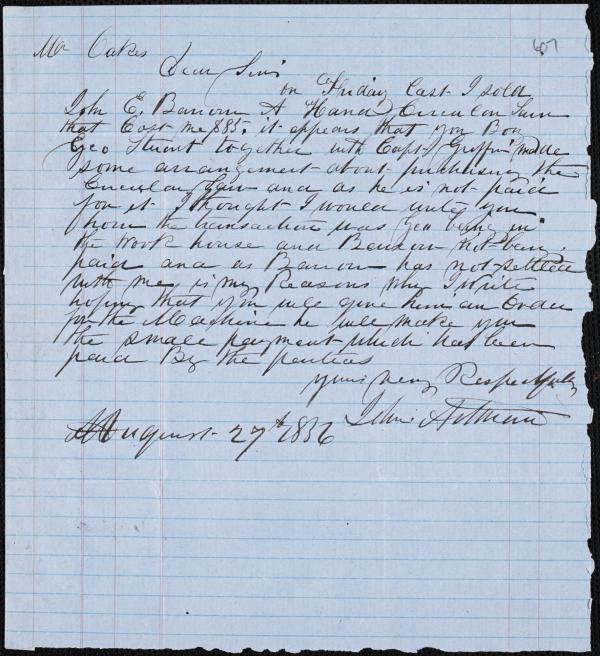 607
Mr Oakes
Dear Sir
on Friday Last I sold
John E. Barrow A Hand Circular Saw
that Cost me $85. it appears that you
Geo together with Capt Griffin made
some arrangement about purchasing the
Circular Saw and as he is not paid
for it I thought I would write you
how the transaction was Geo being in
the Work house and Barrow not being
paid and as Barrow has not settled
with me, is my Reasons why I write
hoping that you will give him an Order
for the Machine he will make you
the small payment which has been
paid By the parties
yours very Respectfully
John
August 27th 1856